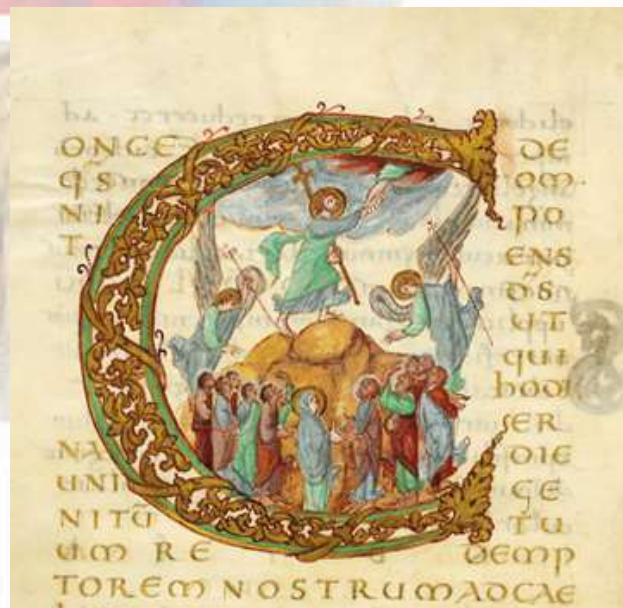 CONCE DE
q̄s om·
NI PO
T ENS
D̄S
UT
qui
hodi
ER
NA DIE
UNI GE
NITŪ TU
UM RE DEMP
TOREM NOSTRUM AD CAE